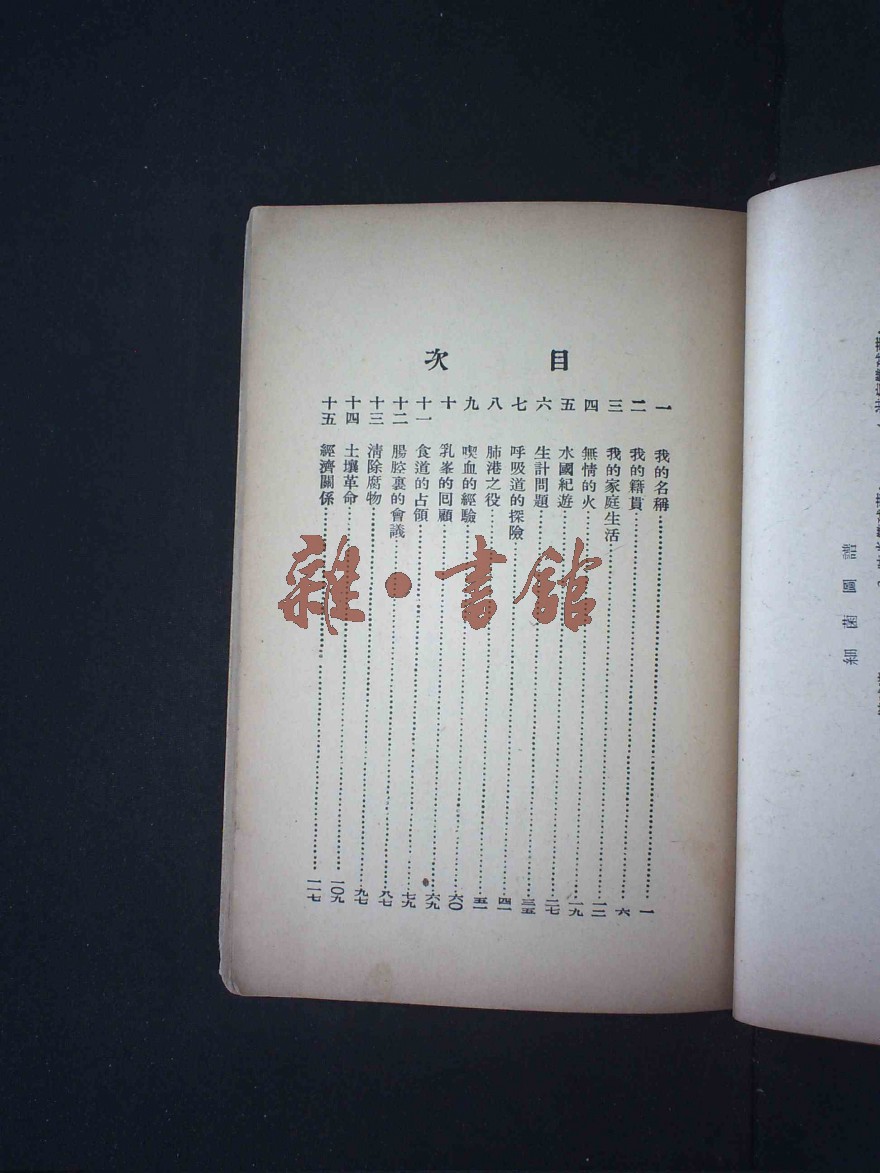 細菌圖譜
目次
一 我的名稱 一
二 我的籍貫 六
三 我的家庭生活 一二
四 無情的火 一九
五 水國紀遊 二七
六 生計問題 三五
七 呼吸道的探險 四一
八 肺港之役 五一
九 喫血的經驗 六〇
十 乳峯的囘顧 六九
十一 食道的占領 七九
十二 腸腔裏的會議 八七
十三 淸除腐物 九七
十四 土壤革命 一〇九
十五 經濟關係 一一七
雜·書館